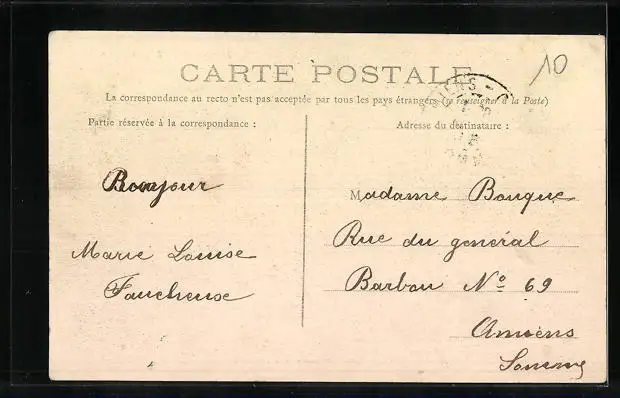 10
CARTE POSTALE
La correspondance au recto n'est pas acceptée par tous les pays étrangers (se renseigner à la Poste)
Partie réservée à la correspondance :
Adresse du destinataire :
Bonjour
Marie Louise
Faucheuse
Madame Bouque
Rue du général
Barbou No 69
Amiens
Somme